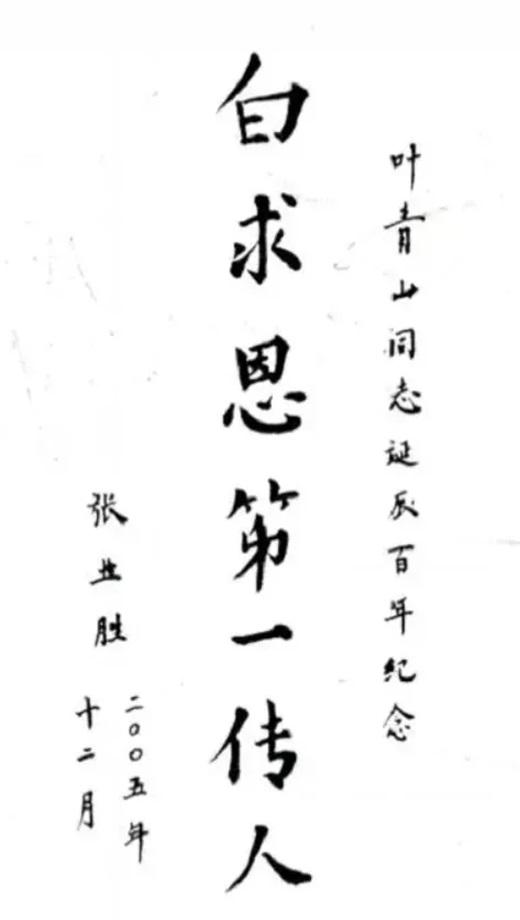 叶青山同志诞辰百年纪念
白求恩第一传人
张业胜
二〇〇五年
十二月